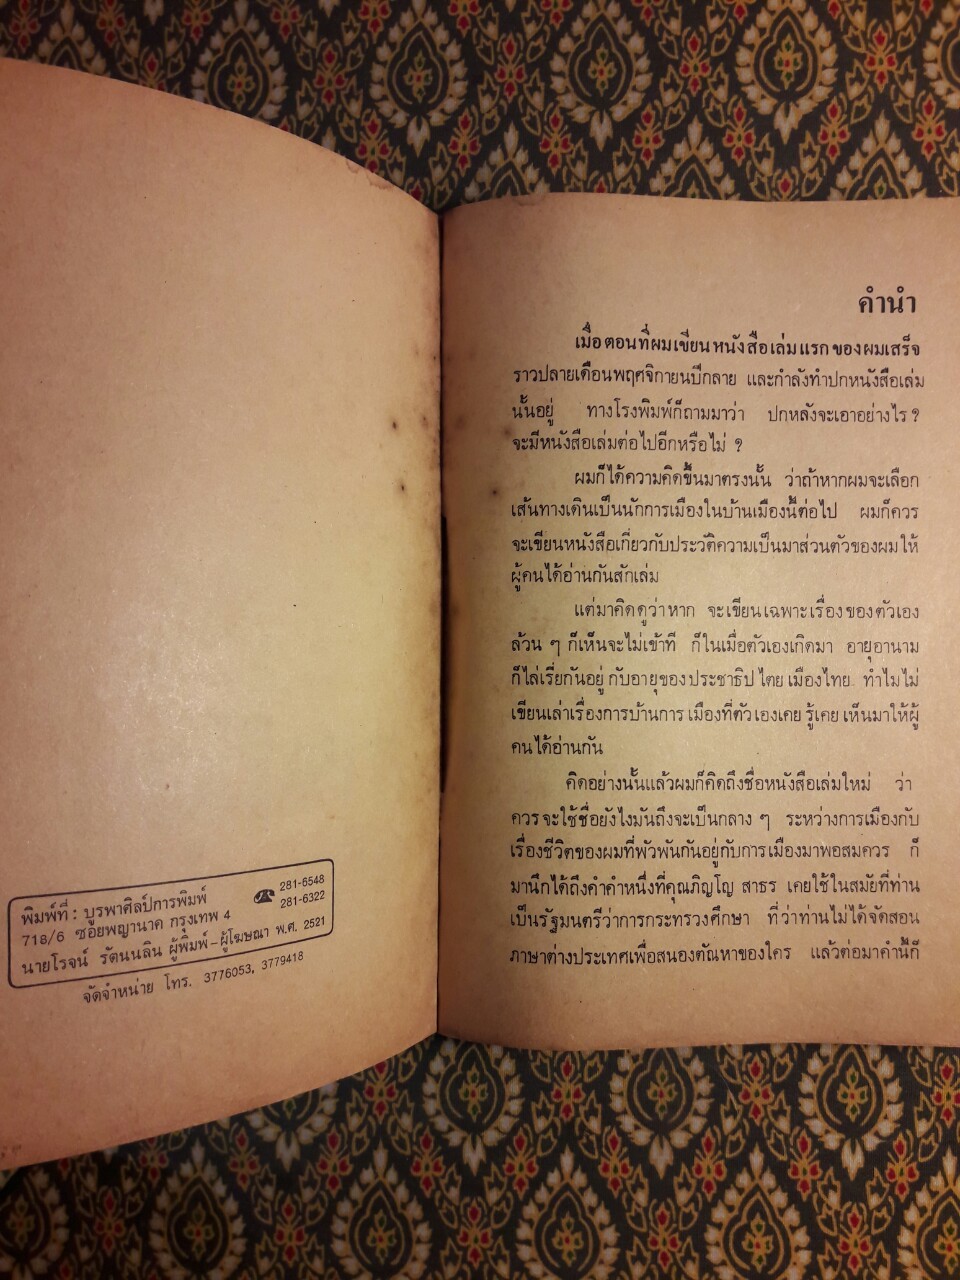 พิมพ์ที่ : บูรพาศิลป์การพิมพ์ ☎ 281-6548
718/6 ซอยพญานาค กรุงเทพ 4 281-6322
นายโรจน์ รัตนนลิน ผู้พิมพ์-ผู้โฆษณา พ.ศ. 2521
จัดจำหน่าย โทร. 3776053, 3779418
คำนำ
เมื่อตอนที่ผมเขียนหนังสือเล่มแรกของผมเสร็จ
ราวปลายเดือนพฤศจิกายนปีกลาย และกำลังทำปกหนังสือเล่ม
นั้นอยู่ ทางโรงพิมพ์ก็ถามมาว่า ปกหลังจะเอาอย่างไร ?
จะมีหนังสือเล่มต่อไปอีกหรือไม่ ?
ผมก็ได้ความคิดขึ้นมาตรงนั้น ว่าถ้าหากผมจะเลือก
เส้นทางเดินเป็นนักการเมืองในบ้านเมืองนี้ต่อไป ผมก็ควร
จะเขียนหนังสือเกี่ยวกับประวัติความเป็นมาส่วนตัวของผมให้
ผู้คนได้อ่านกันสักเล่ม
แต่มาคิดดูว่าหาก จะเขียนเฉพาะเรื่องของตัวเอง
ล้วน ๆ ก็เห็นจะไม่เข้าที ก็ในเมื่อตัวเองเกิดมา อายุอานาม
ก็ไล่เรี่ยกันอยู่ กับอายุของประชาธิปไตยเมืองไทย ทำไมไม่
เขียนเล่าเรื่องการบ้านการเมืองที่ตัวเองเคยรู้เคยเห็นมาให้ผู้
คนได้อ่านกัน
คิดอย่างนั้นแล้วผมก็คิดถึงชื่อหนังสือเล่มใหม่ ว่า
ควรจะใช้ชื่อยังไงมันถึงจะเป็นกลาง ๆ ระหว่างการเมืองกับ
เรื่องชีวิตของผมที่พัวพันกันอยู่กับการเมืองมาพอสมควร ก็
มานึกได้ถึงคำคำหนึ่งที่คุณภิญโญ สาธร เคยใช้ในสมัยที่ท่าน
เป็นรัฐมนตรีว่าการกระทรวงศึกษา ที่ว่าท่านไม่ได้จัดสอน
ภาษาต่างประเทศเพื่อสนองตัณหาของใคร แล้วต่อมาคำนี้ก็